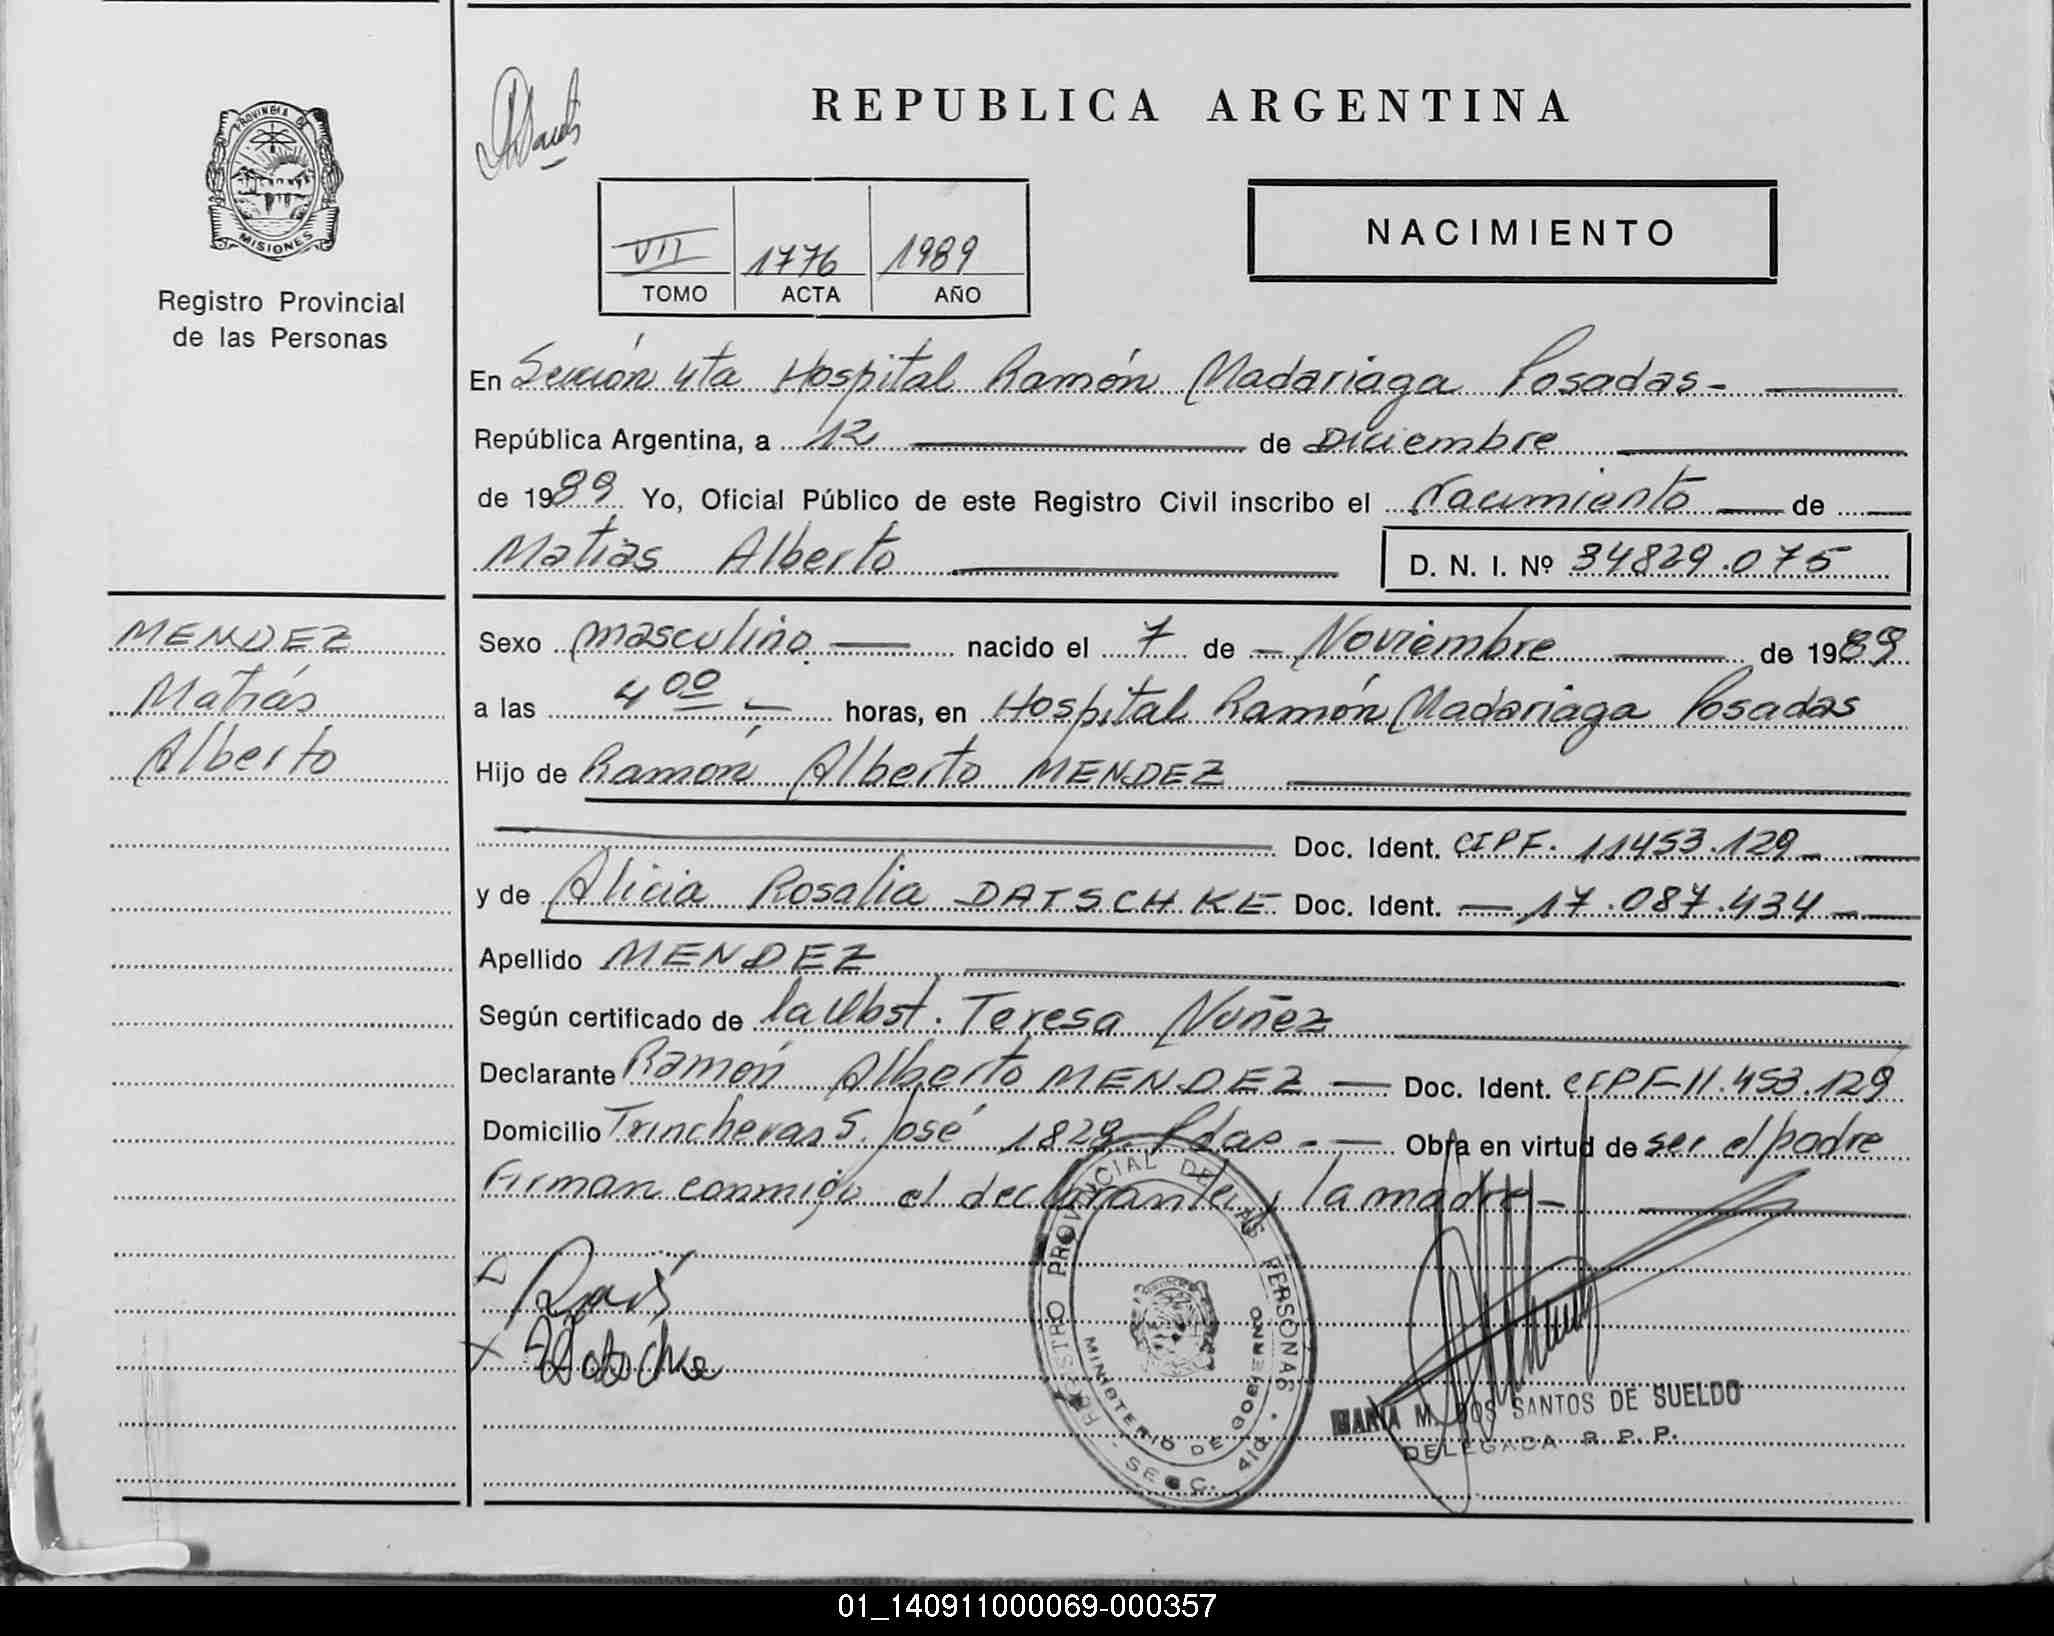 REPUBLICA ARGENTINA
PROVINCIA DE
MISIONES
Registro Provincial
de las Personas
NACIMIENTO
VII 1776 1989
TOMO ACTA AÑO
En Sección 4ta Hospital Ramón Madariaga Posadas-
República Argentina, a 12 de Diciembre
de 1989 Yo, Oficial Público de este Registro Civil inscribo el Nacimiento de
Matias Alberto D. N. I. Nº 34829.075
MENDEZ
Matiás
Alberto
Sexo masculino nacido el 7 de Noviembre de 1989
a las 4 00 horas, en Hospital Ramón Madariaga Posadas
Hijo de Ramón Alberto MENDEZ
Doc. Ident. CIPF. 11453.129
y de Alicia Rosalia DATSCHKE Doc. Ident. 17.087.434
Apellido MENDEZ
Según certificado de la Obst. Teresa Nuñez
Declarante Ramón Alberto MENDEZ Doc. Ident. CIPF 11.453.129
Domicilio Trincheras S. José 1829 Pdas - Obra en virtud de ser el padre
Firman conmigo el declarante y la madre-
Datschke
REGISTRO PROVINCIAL DE LAS PERSONAS
MINISTERIO DE GOBIERNO
SECC. 4ta.
MARIA M. DOS SANTOS DE SUELDO
DELEGADA R. P. P.
01_140911000069-000357